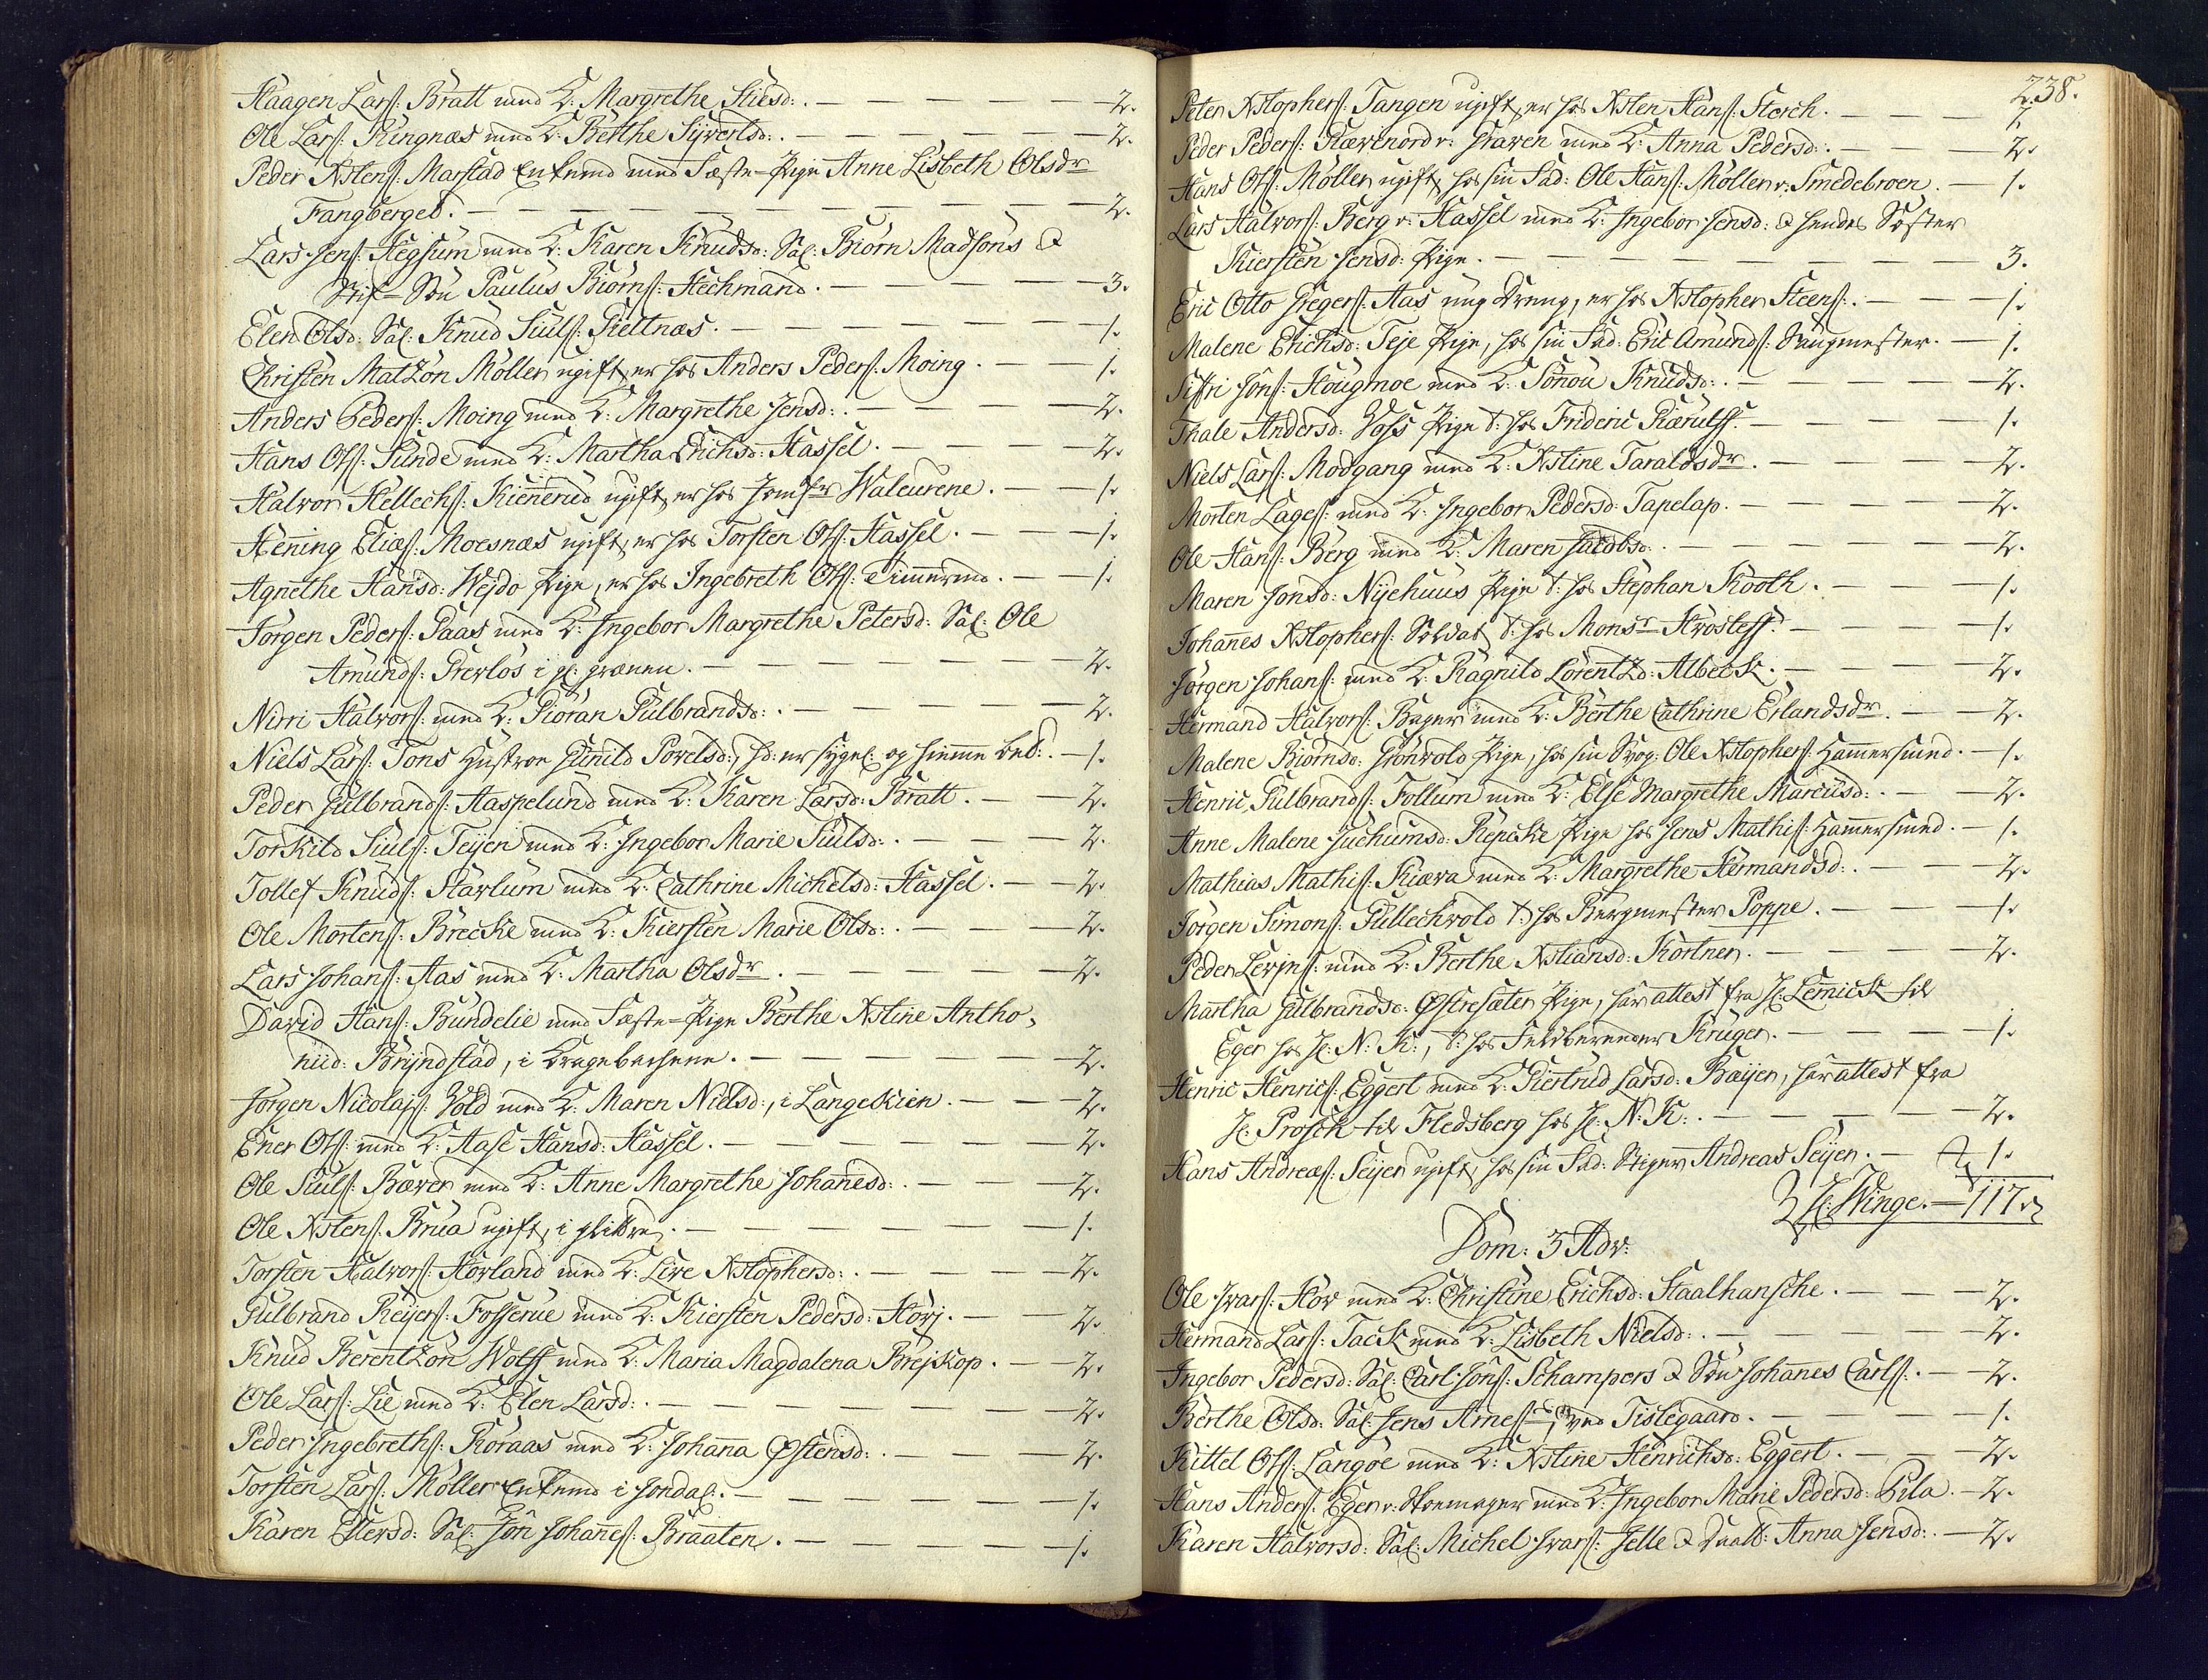 Haagen Lars: Bratt med K: Margrethe Stiesd: . — 2.
Ole Lars: Ringnæs med K: Berthe Syvertsd: . — 2.
Peder Xstens: Marstad Enkemd med Fæste-Pige Anne Lisbeth Olsdr
Fangberget. — 2.
Lars Jens: Hegsum med K: Karen Knudsd: Sal: Biörn Madsöns &
Stif-Sön Paulus Biörns: Hechmand. — 3.
Elen Olsd: Sal: Knud Siuls: Gieltnæs. — 1.
Christen Matzon Möller ugift, er hos Anders Peders: Moing. — 1.
Anders Peders: Moing med K: Margrethe Jensd: . — 2.
Hans Ols: Sunde med K: Martha Erichsd: Hassel. — 2.
Halvor Hellechs: Kiennerud ugift, er hos Jomfr Waleurene. — 1.
Henning Elias: Moesnæs ugift, er hos Torsten Ols: Hassel. — 1.
Agnethe Hansd: Wejdo Pige, er hos Ingebreth Ols: Timmermd. — 1.
Jörgen Peders: Paas med K: Ingebor Margrethe Petersd: Sal: Ole
Amunds: Grevlös i gl: grænen. — 2.
Nirri Halvors: med K: Giöran Gulbrandsd: . — 2.
Niels Lars: Tons Hustroe Gunild Povelsd:, hd: er sygel: og hiemme bet: . — 1.
Peder Gulbrands: Aaspelund med K: Karen Larsd: Bratt. — 2.
Torkild Siuls: Teyen med K: Ingebor Marie Siulsd: . — 2.
Tollef Knuds: Stavlum med K: Cathrine Michelsd: Hassel. — 2.
Ole Mortens: Brecke med K: Kiersten Marie Olsd: . — 2.
Lars Johans: Aas med K: Martha Olsdr . — 2.
David Hans: Bundelie med Fæste-Pige Berthe Xstine Antho-
niid: Bryndstad, i Kragebachene. — 2.
Jörgen Nicolajs: Vold med K: Maren Nielsd:, i Langeskien. — 2.
Ener Ols: med K: Aase Hansd: Hassel. — 2.
Ole Siuls: Bæver med K: Anne Margrethe Johannesd: . — 2.
Ole Xstens: Brua ugift, i glittre. — 1.
Torsten Halvors: Hovland med K: Live Xstophersd: . — 2.
Gulbrand Reyers: Fosserue med K: Kiersten Pedersd: Hövj. — 2.
Knud Berentzön Wolff med K: Maria Magdalena Brejskop. — 2.
Ole Lars: Lie med K: Elen Larsd: . — 2.
Peder Ingebreths: Roraas med K: Johanna Østensd: . — 2.
Torsten Lars: Möller Enkemd i Jondal: . — 1.
Karen Ellersd: Sal: Jön Johannes: Braaten. — 1.
238.
Peter Xstophers: Tangen ugift, er hos Xsten Hans: Storch. — 1.
Peder Peders: Rævenord v: Graven med K: Anna Pedersd: . — 2.
Hans Ols: Möller ugift, hos sin Fad: Ole Hans: Möller v: Smedebroen. — 1.
Lars Halvors: Berg v: Hassel med K: Ingebor Jensd: & hendes Söster
Kiersten Jensd: Pige. — 3.
Eric Otto Gregers: Aas ung Dreng, er hos Xstopher Steens: . — 1.
Malene Erichsd: Teje Pige, hos sin Fad: Eric Amunds: Sangmester. — 1.
Siffri Jöns: Hougmoe med K: Sönou Knudsd: . — 2.
Thale Andersd: Voss Pige t: hos Frideric Kierulff. — 1.
Niels Lars: Modgang med K: Xstine Taraldsdr . — 2.
Morten Lages: med K: Ingebor Pedersd: Tapelap. — 2.
Ole Hans: Berg med K: Maren Jacobsd: . — 2.
Maren Jonsd: Nyehuus Pige t: hos Stephan Kooth. — 1.
Johannes Xstophers: Soldat, t: hos Monsr Hrösleff: — 1.
Jörgen Johans: med K: Ragnild Lorentzd: Albeck. — 2.
Hermand Halvors: Bager med K: Berthe Cathrine Erlandsdr . — 2.
Malene Biörnsd: Grönvold Pige, hos sin Svog: Ole Xstophers: Hammersmed. — 1.
Henric Gulbrands: Follum med K: Else Margrethe Marcusd: . — 2.
Anne Malene Juchumsd: Repecke Pige hos Jens Mathis: Hammersmed. — 1.
Mathias Mathis: Kiæra med K: Margrethe Hermandsd: . — 2.
Jörgen Simons: Gullechvold t: hos Bergmester Poppe. — 1.
Peder Levjns: med K: Berthe Xstiansd: Körtner. — 2.
Martha Gulbrandsd: Østresæter Pige, har attest fra H: Lemick til
Eger hos H: N: K:, t: hos Feldbereder Kruger. — 1.
Henric Henrics: Eggert med K: Giertrud Larsd: Bæyer, har attest fra
H: Prosch til Fledsberg hos H: N: K: . — 2.
Hans Andreas: Seyer ugift, hos sin Fad: Stiger Andreas Seyer. — 1.
H: Winge. — 117.
Dom: 3 Adv:
Ole Ivars: Hov med K: Christine Erichsd: Staalhansche. — 2.
Hermand Lars: Tack med K: Lisbeth Nielsd: . — 2.
Ingebor Pedersd: Sal: Carl Jöns: Schampers & Sön Johannes Carls: . — 2.
Berthe Olsd: Sal: Jens Arnes:, ved Tislegaard. — 1.
Kittel Ols: Langöe med K: Xstine Henrichsd: Eggert. — 2.
Hans Anders: Eger v: Skoemager med K: Ingebor Marie Pedersd: Pila. — 2.
Karen Halvorsd: Sal: Michel Ivars: Jelle & Datt: Anna Jensd: . — 2.